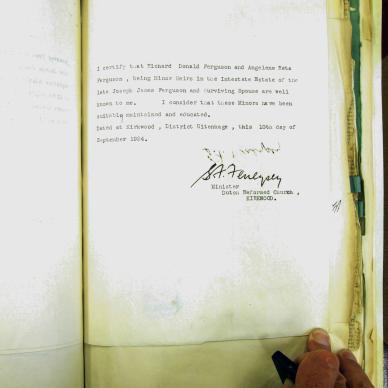 I certify that Richard Donald Ferguson and Angelena Reta
Ferguson , being Minor Heirs in the Intestate Estate of the
late Joseph James Ferguson and Surviving Spouse are well
known to me. I consider that these Minors have been
suitably maintained and educated.
Dated at Kirkwood , District Uitenhage , this 10th day of
September 1924.
Minister
Dutch Reformed Church ,
KIRKWOOD.